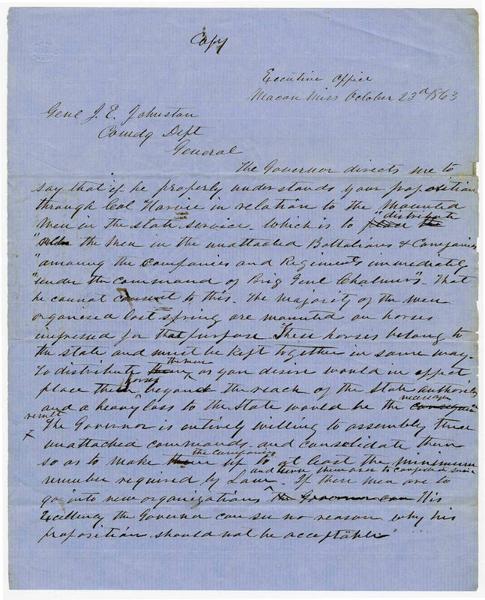 Copy
Executive Office
Macon Miss October 23rd 1863
Genl J. E. Johnston
Comdg Dept
General
The Governor directs me to
say that if he properly understands your proposition
through Col Harvie in relation to the Mounted
men in the State service, which is to "distribute
place the
the men in the unattached Battalions & Companies
"among the companies and Regiments immediately
"under the command of Brig Genl Chalmers". That
he cannot consent to this. The majority of the men
organised last spring are mounted on horses
impressed for that purpose These horses belong to
the State and must be kept together in some way.
To distribute them the men as you desire would in effect
place these horses beyond the reach of the State authority
and a heavy loss to the State would be the necessary
result
The Governor is entirely willing to assembly these
unattached commands, and consolidate them
so as to make them the companies up to at least the minimum
number required by Law. and turn them over to Confederate service If these men are to
go into new organizations the Governor can His
Excellency the Governor can see no reason why his
proposition should not be acceptable